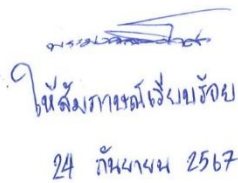 ให้สัมภาษณ์เรียบร้อย
24 กันยายน 2567